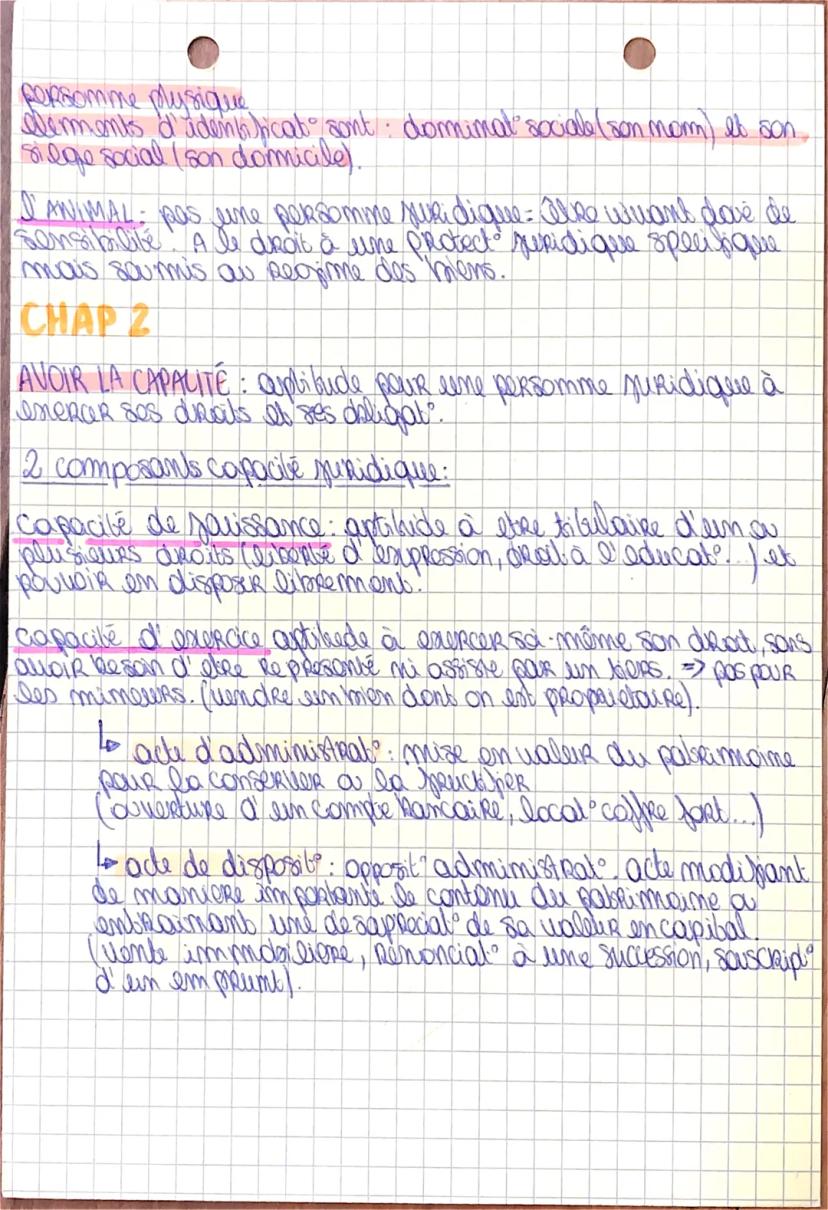 personne physique
elements d'identificat° sont : dominat° sociale (son nom) et son
siege social (son domicile).
L'ANIMAL : pas une personne juridique = être vivant doué de
sensibilité. A le droit à une protect° juridique specifique
mais soumis au regime des biens.
CHAP 2
AVOIR LA CAPACITÉ : aptitude pour une personne juridique à
exercer ses droits et ses obligat°.
2 composants capacité juridique :
capacité de jouissance : aptitude à etre titulaire d'un ou
plusieurs droits (liberté d'expression, droit à l'educat°...) et
pouvoir en disposer librement.
capacité d'exercice aptitude à exercer soi-même son droit, sans
avoir besoin d'etre représenté ni assisté par un tiers. => pas pour
les mineurs. (vendre un bien dont on est propriétaire).
↳ acte d'administrat° : mise en valeur du patrimoine
pour la conserver ou la fructifier
(ouverture d'un compte bancaire, locat° coffre fort...)
↳ acte de disposit° : opposit° administrat°. acte modifiant
de maniere importante le contenu du patrimoine ou
entrainant une desapreciat° de sa valeur en capital.
(vente immobiliere, renonciat° à une succession, souscript°
d'un emprunt).